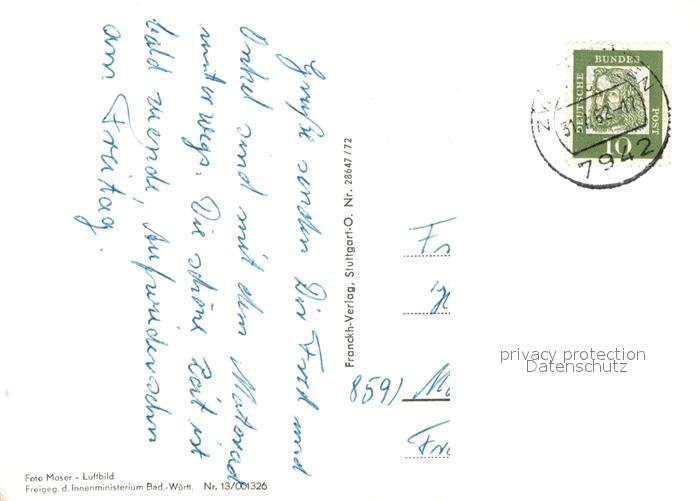 Grüße senden Dir Fred und
Onkel sind mit dem Motorad
unterwegs. Die schöne Zeit ist
bald zuende, Aufwiedersehn
am Freitag.
Franckh-Verlag, Stuttgart-O. Nr. 28647/72
DEUTSCHE BUNDES POST
10
7942
859)
privacy protection
Datenschutz
Foto Moser - Luftbild
Freigeg. d. Innenministerium Bad.-Württ. Nr. 13/001326